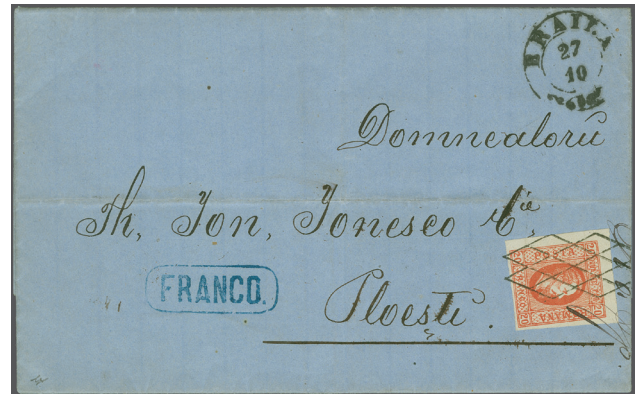 BRAILA
27
10
Domnealorŭ
Th. Ion, Ionesco & Cie
FRANCO.
Ploesti.
POSTA
20
20